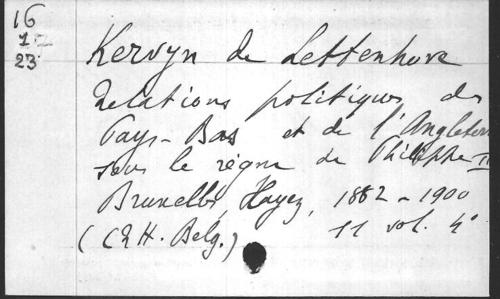 16
12
23
Kervyn de Lettenhove
Relations politiques des
Pays-Bas et de l'Angleterre
sous le règne de Philippe II
Bruxelles, Hayez, 1882-1900
(C R H. Belg.) 11 vol. 4°